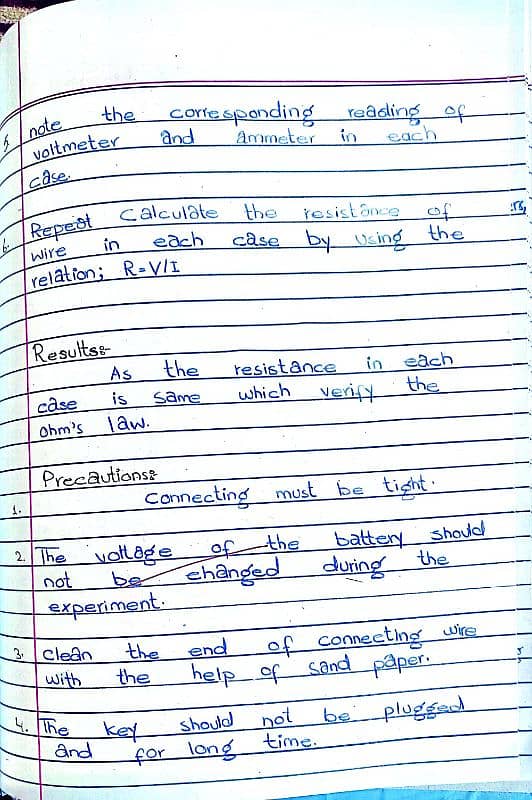 5. note the corresponding reading of
voltmeter and ammeter in each
case.
6. Repeat Calculate the resistance of
wire in each case by using the
relation; R=V/I
Results:-
As the resistance in each
case is same which verify the
ohm's law.
Precautions:-
1. Connecting must be tight.
2. The voltage of the battery should
not be changed during the
experiment.
3. clean the end of connecting wire
with the help of sand paper.
4. The key should not be plugged
and for long time.